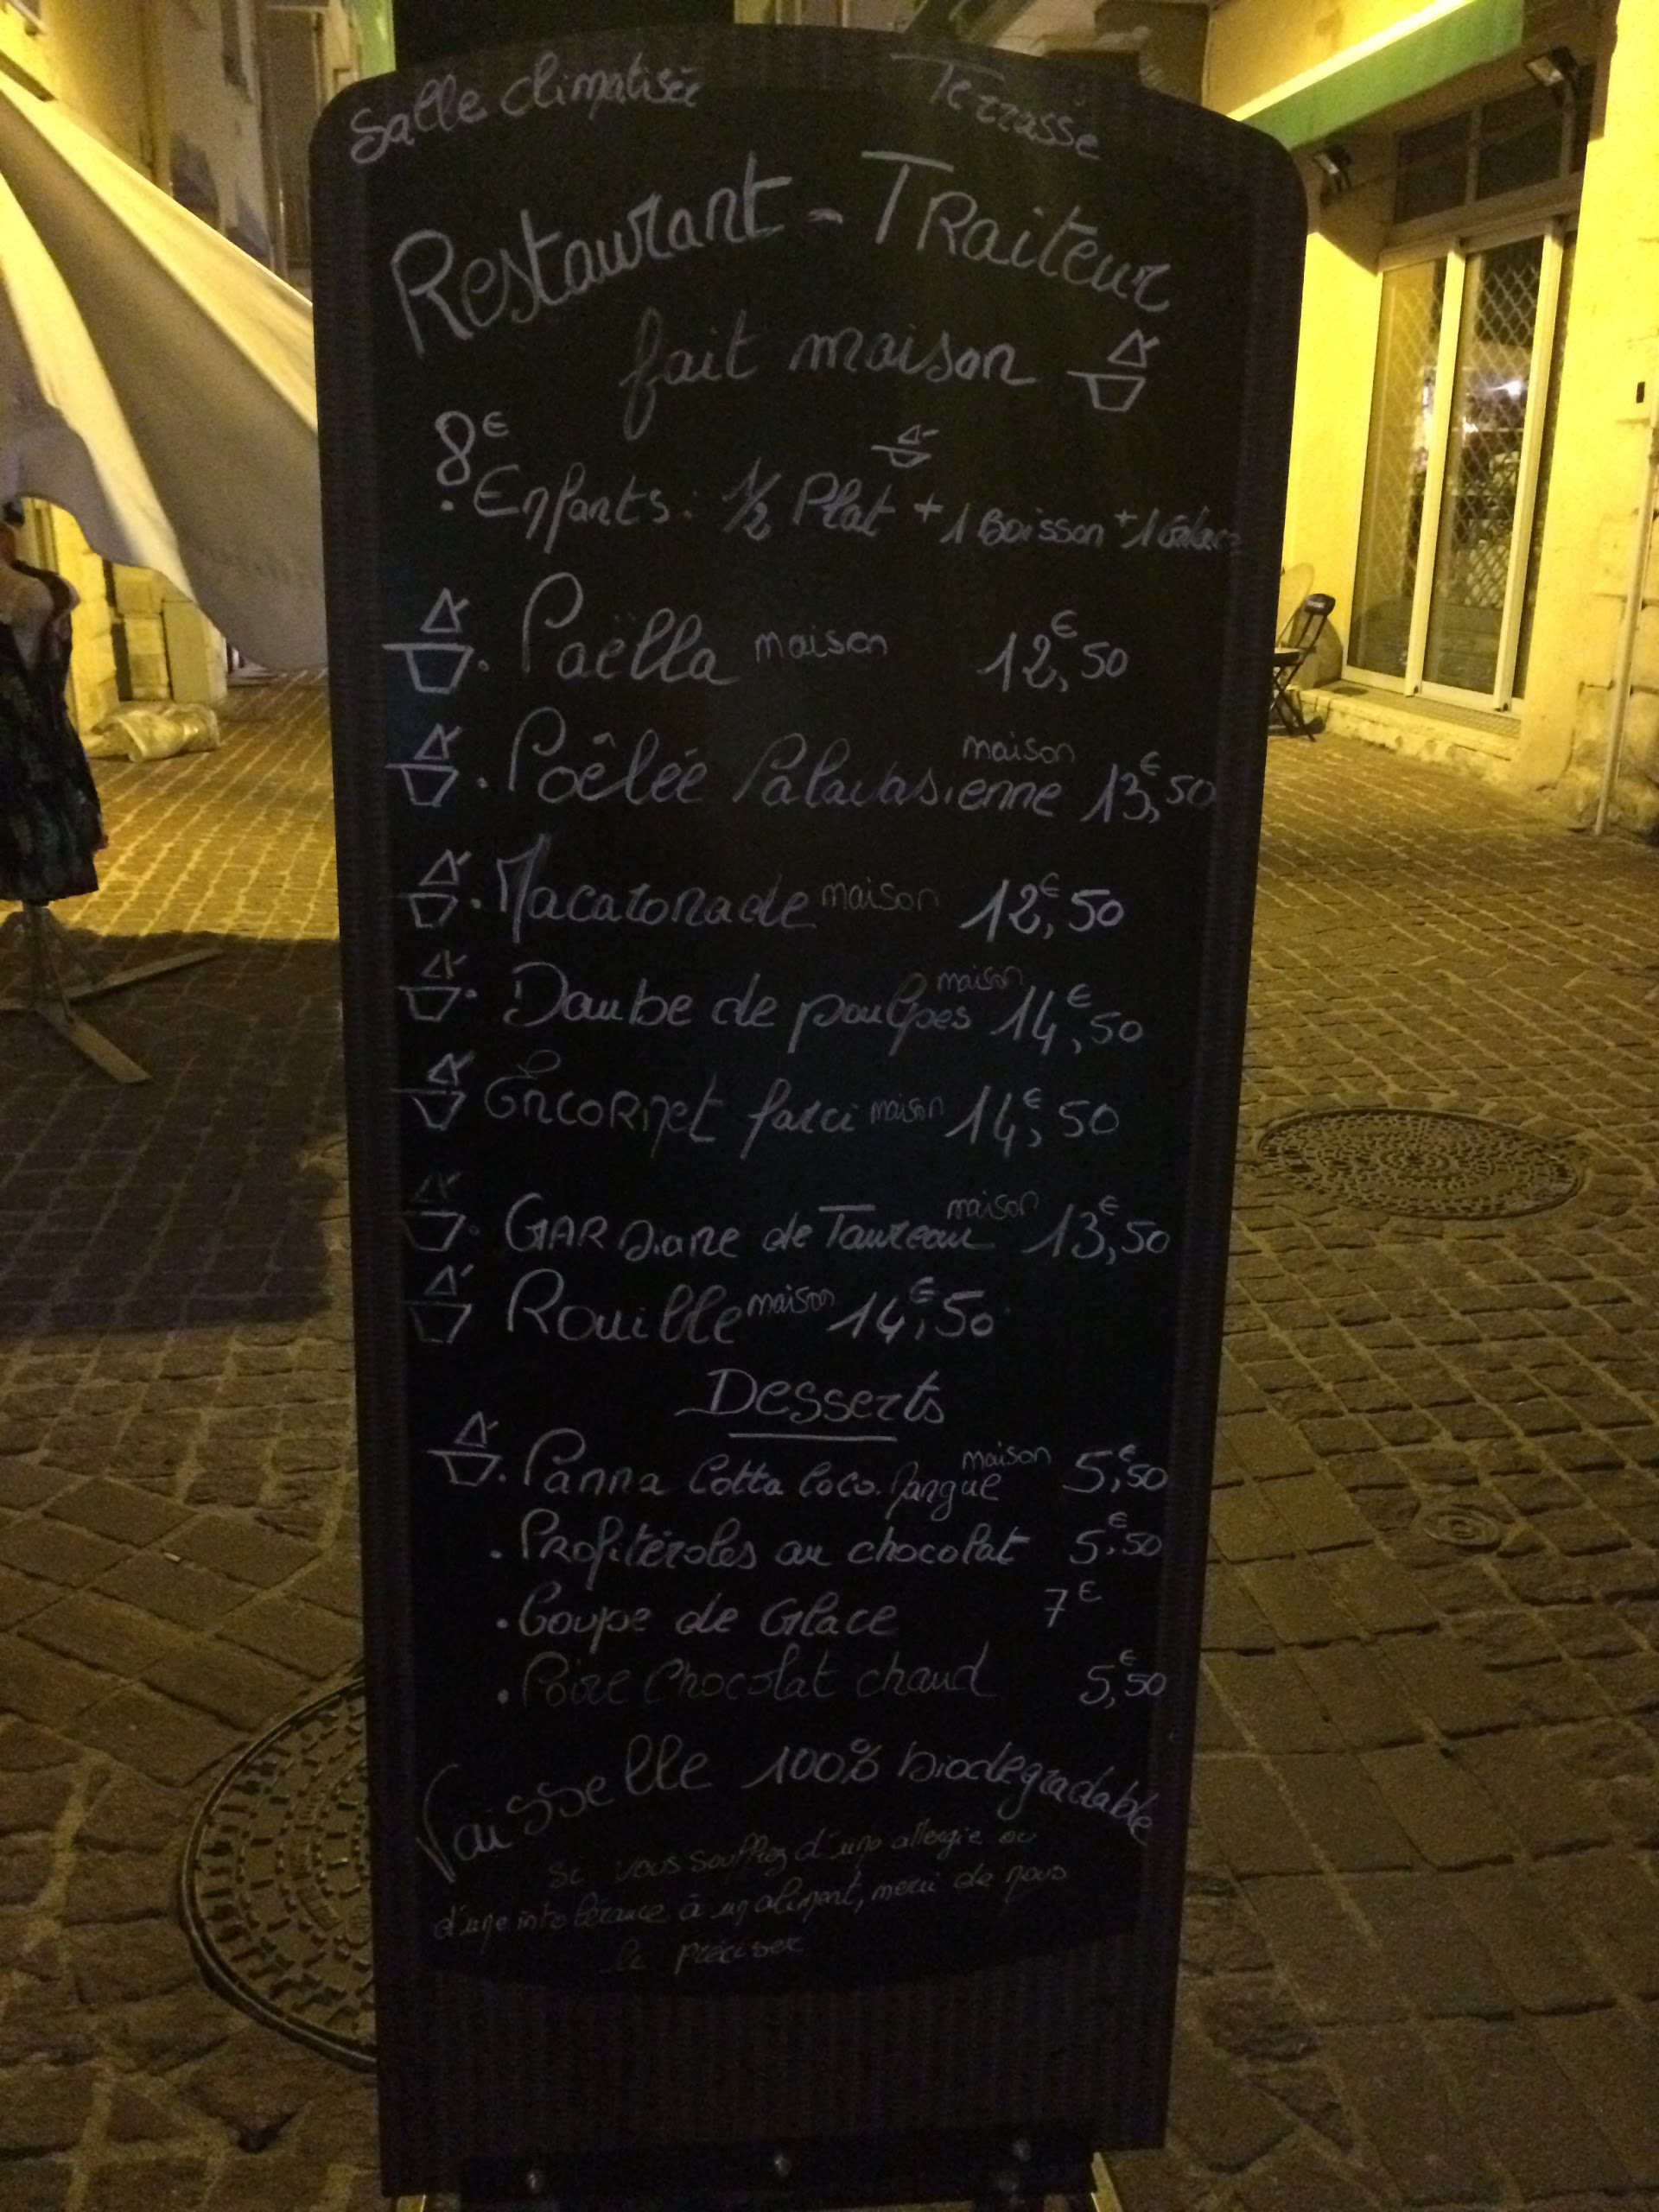 Salle climatisée Terrasse
Restaurant - Traiteur
fait maison
8€
. Enfants : 1/2 Plat + 1 Boisson + 1 Glace
. Paëlla maison 12€,50
. Poêlée Palavasienne maison 13€,50
. Macaronade maison 12€,50
. Daube de poulpes maison 14€,50
Encornet farci maison 14€,50
. GARdiane de Taureau maison 13€,50
Rouille maison 14€,50
Desserts
. Panna Cotta Coco. Mangue maison 5€,50
. Profitéroles au chocolat 5€,50
. Coupe de Glace 7€
. Poire Chocolat chaud 5€,50
Vaisselle 100% biodegradable
Si vous souffrez d'une allergie ou
d'une intolérance à un aliment, merci de nous
le préciser